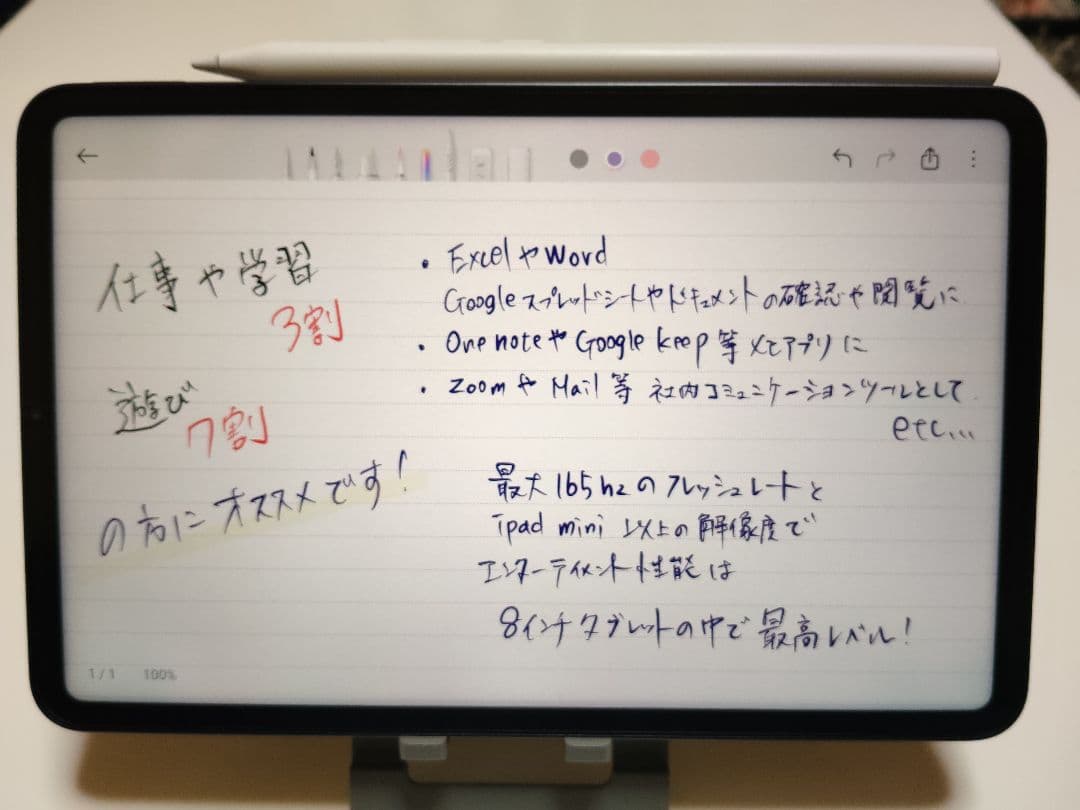 仕事や学習
3割
遊び
7割
の方にオススメです!
・ExcelやWord
Googleスプレッドシートやドキュメントの確認や閲覧に
・OnenoteやGoogle keep等メモアプリに
・ZoomやMail等 社内コミュニケーションツールとして
etc...
最大165hzのフレッシュレートと
ipad mini 以上の解像度で
エンターテイメント性能は
8インチタブレットの中で最高レベル!
1/1 100%